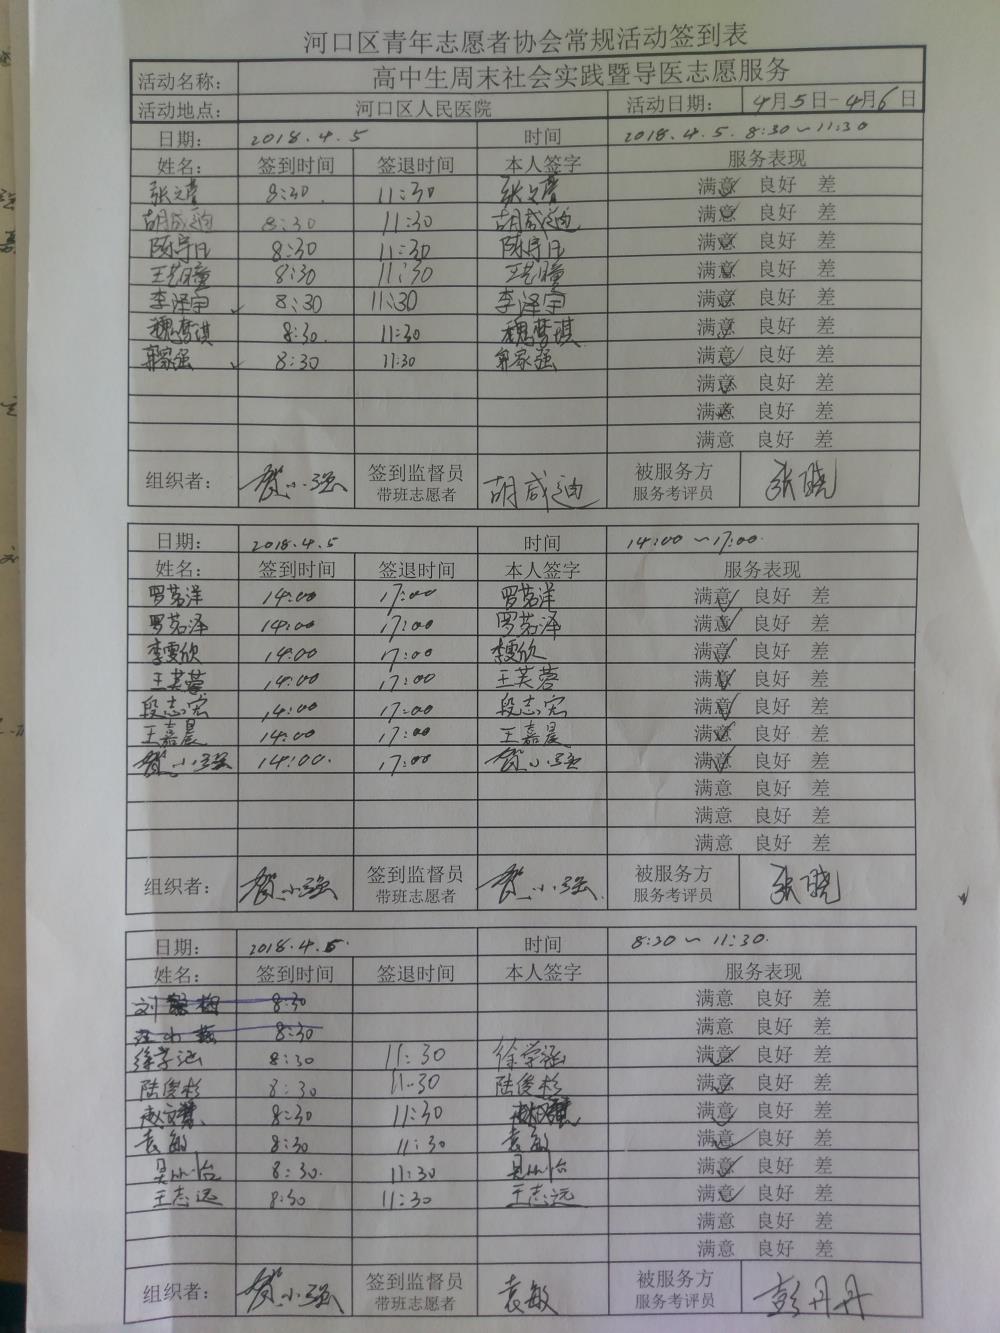 河口区青年志愿者协会常规活动签到表
活动名称: 高中生周末社会实践暨导医志愿服务
活动地点: 河口区人民医院 活动日期: 4月5日-4月6日
日期: 2018.4.5 时间 2018.4.5. 8:30~11:30
姓名: 签到时间 签退时间 本人签字 服务表现
张文萱 8:30. 11:30 张文萱 满意 良好 差
胡咸迪 8:30 11:30 胡咸迪 满意 良好 差
陈宇 8:30 11:30 陈宇 满意 良好 差
王艺瞳 8:30 11:30 王艺瞳 满意 良好 差
李泽宇 8:30 11:30 李泽宇 满意 良好 差
魏梦琪 8:30. 11:30 魏梦琪 满意 良好 差
郭家强 8:30 11:30 郭家强 满意 良好 差
满意 良好 差
满意 良好 差
满意 良好 差
组织者: 贺小强 签到监督员 胡咸迪 被服务方 张晓
带班志愿者 服务考评员
日期: 2018.4.5 时间 14:00~17:00.
姓名: 签到时间 签退时间 本人签字 服务表现
罗茗洋 14:00 17:00 罗茗洋 满意 良好 差
罗茗泽 14:00 17:00 罗茗泽 满意 良好 差
李雯欣 14:00 17:00 李雯欣 满意 良好 差
王芙蓉 14:00 17:00 王芙蓉 满意 良好 差
段志宏 14:00 17:00 段志宏 满意 良好 差
王嘉晨 14:00 17:00 王嘉晨 满意 良好 差
贺小强 14:00. 17:00 贺小强 满意 良好 差
满意 良好 差
满意 良好 差
满意 良好 差
组织者: 贺小强 签到监督员 贺小强 被服务方 张晓
带班志愿者 服务考评员
日期: 2018.4.6. 时间 8:30~11:30.
姓名: 签到时间 签退时间 本人签字 服务表现
刘 8:30 满意 良好 差
8:30 满意 良好 差
徐学涵 8:30 11:30 徐学涵 满意 良好 差
陆俊杉 8:30 11:30 陆俊杉 满意 良好 差
赵文慧 8:30 11:30 满意 良好 差
袁敏 8:30 11:30 袁敏 满意 良好 差
吴怡 8:30. 11:30 吴怡 满意 良好 差
王志远 8:30 11:30 王志远 满意 良好 差
满意 良好 差
满意 良好 差
组织者: 贺小强 签到监督员 袁敏 被服务方 彭丹丹
带班志愿者 服务考评员